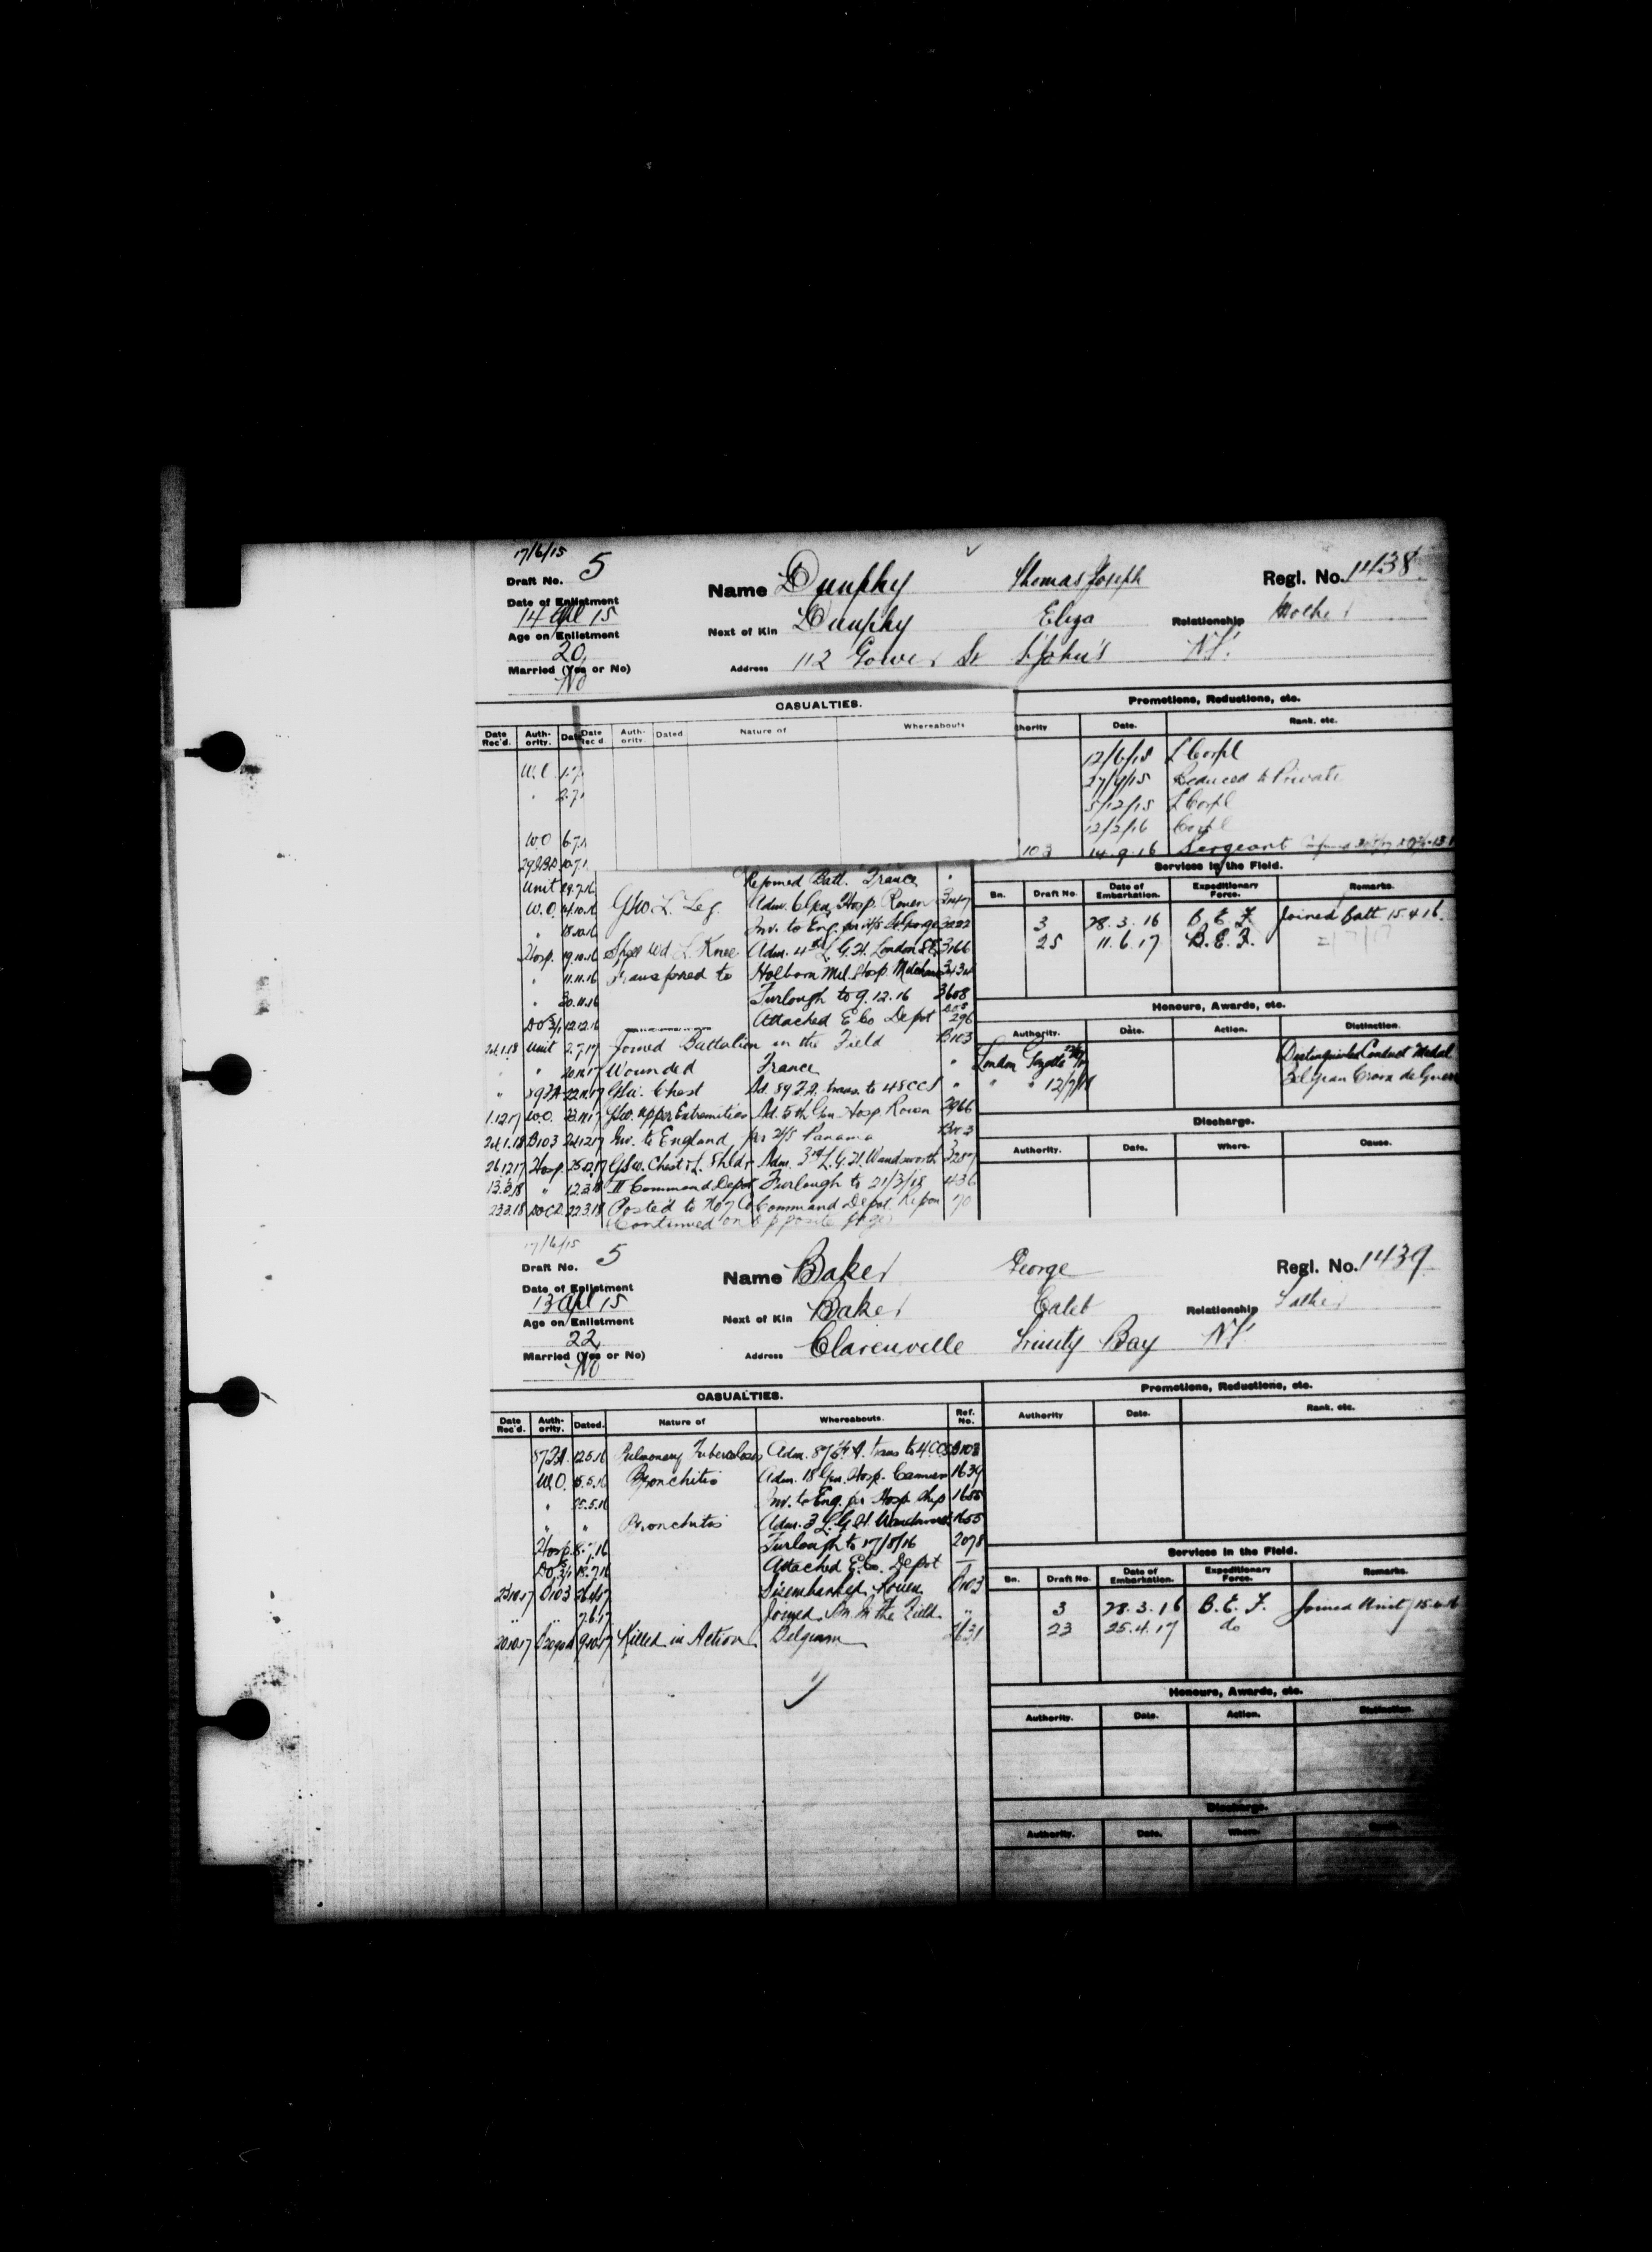 17/6/15
Draft No. 5
Name Dunphy Thomas Joseph Regl. No. 1438
Date of Enlistment
14 Apl 15
Next of Kin Dunphy Eliza Relationship Mother
Age on Enlistment
20
Address 112 Gower St St John's Nf.
Married (Yes or No)
No
CASUALTIES. Promotions, Reductions, etc.
Date Rec'd. Auth-ority. Date Date Rec'd Auth-ority. Dated Nature of Whereabouts thority Date. Rank, etc.
12/6/15 L Corpl
W.O. 1.7.
27/9/15 Reduced to Private
" 2.7.
5/12/15 L Corpl
12/2/16 Corpl
W.O 6.7.
103 14.9.16 Sergeant
10.7.1
Services in the Field.
Unit 29.7.16 Rejoined Batt. France "
Bn. Draft No. Date of Embarkation. Expeditionary Force. Remarks.
W.O. 14.10.16 GSW L. Leg. Adm. Hosp. Rouen
3 28.3.16 B.E.F. Joined Batt 15.4.16.
" 18.10.16 Inv. to Eng. per H/S St. George
25 11.6.17 B.E.F.
Hosp. 19.10.16 L. Knee Adm. 4th L.G.H. London SE 3166
" 11.11.16 Transferred to Holborn Mil. Hosp. 3434
" 30.11.16 Furlough to 9.12.16 3608
Honours, Awards, etc.
12.12.16 Attached E Co Depot 296
Authority. Date. Action. Distinction.
24.1.18 Unit 2.7.17 Joined Battalion in the Field B103
London Gazette Distinguished Conduct Medal
" " 20.11.17 Wounded France "
" " 12/7/18 Belgian Croix de Guerre
" 89FA 22.11.17 GSW. Chest Ad. 89 F.A. trans. to 48 CCS "
1.12.17 W.O. 23.11.17 GSW. upper Extremities Ad. 5th Gen Hosp. Rouen 2966
Discharge.
24.1.18 B103 24.12.17 Inv. to England per H/S Panama B103
Authority. Date. Where. Cause.
26.12.17 Hosp. 25.12.17 GSW. Chest & L. Shldr Adm. 3rd L.G.H. Wandsworth 3287
13.3.18 " 12.3.18 II Command Depot Furlough to 21/3/18 436
23.3.18 22.3.18 Posted to No 7 Co Command Depot Ripon 70
(Continued on opposite page)
17/6/15
Draft No. 5
Name Baker George Regl. No. 1439
Date of Enlistment
13 Apl 15
Next of Kin Baker Caleb Relationship Father
Age on Enlistment
22
Address Clarenville Trinity Bay Nf.
Married (Yes or No)
No
CASUALTIES. Promotions, Reductions, etc.
Date Rec'd. Auth-ority. Dated. Nature of Whereabouts. Ref. No. Authority Date. Rank, etc.
87FA. 12.5.16 Pulmonary Tuberculosis Adm. 87th F.A. trans to 4 CCS B103
W.O. 15.5.16 Bronchitis Adm. 18 Gen. Hosp. Camiers 1639
" 25.5.16 Inv. to Eng. per Hosp. Ship 1655
" " Bronchitis Adm. 3 L.G.H. Wandsworth 1655
Hosp. 8.7.16 Furlough to 17/8/16 2078
18.7.16 Attached E Co. Depot
Services in the Field.
23.10.17 B103 26.4.17 Disembarked. Rouen B103
Bn. Draft No. Date of Embarkation. Expeditionary Force. Remarks.
" " 7.6.17 Joined Bn in the Field "
3 28.3.16 B.E.F. Joined Unit 15.4.16
20.10.17 9.10.17 Killed in Action Belgium 2631
23 25.4.17 do
Honours, Awards, etc.
Authority. Date. Action. Distinction.
Discharge.
Authority. Date. Where. Cause.